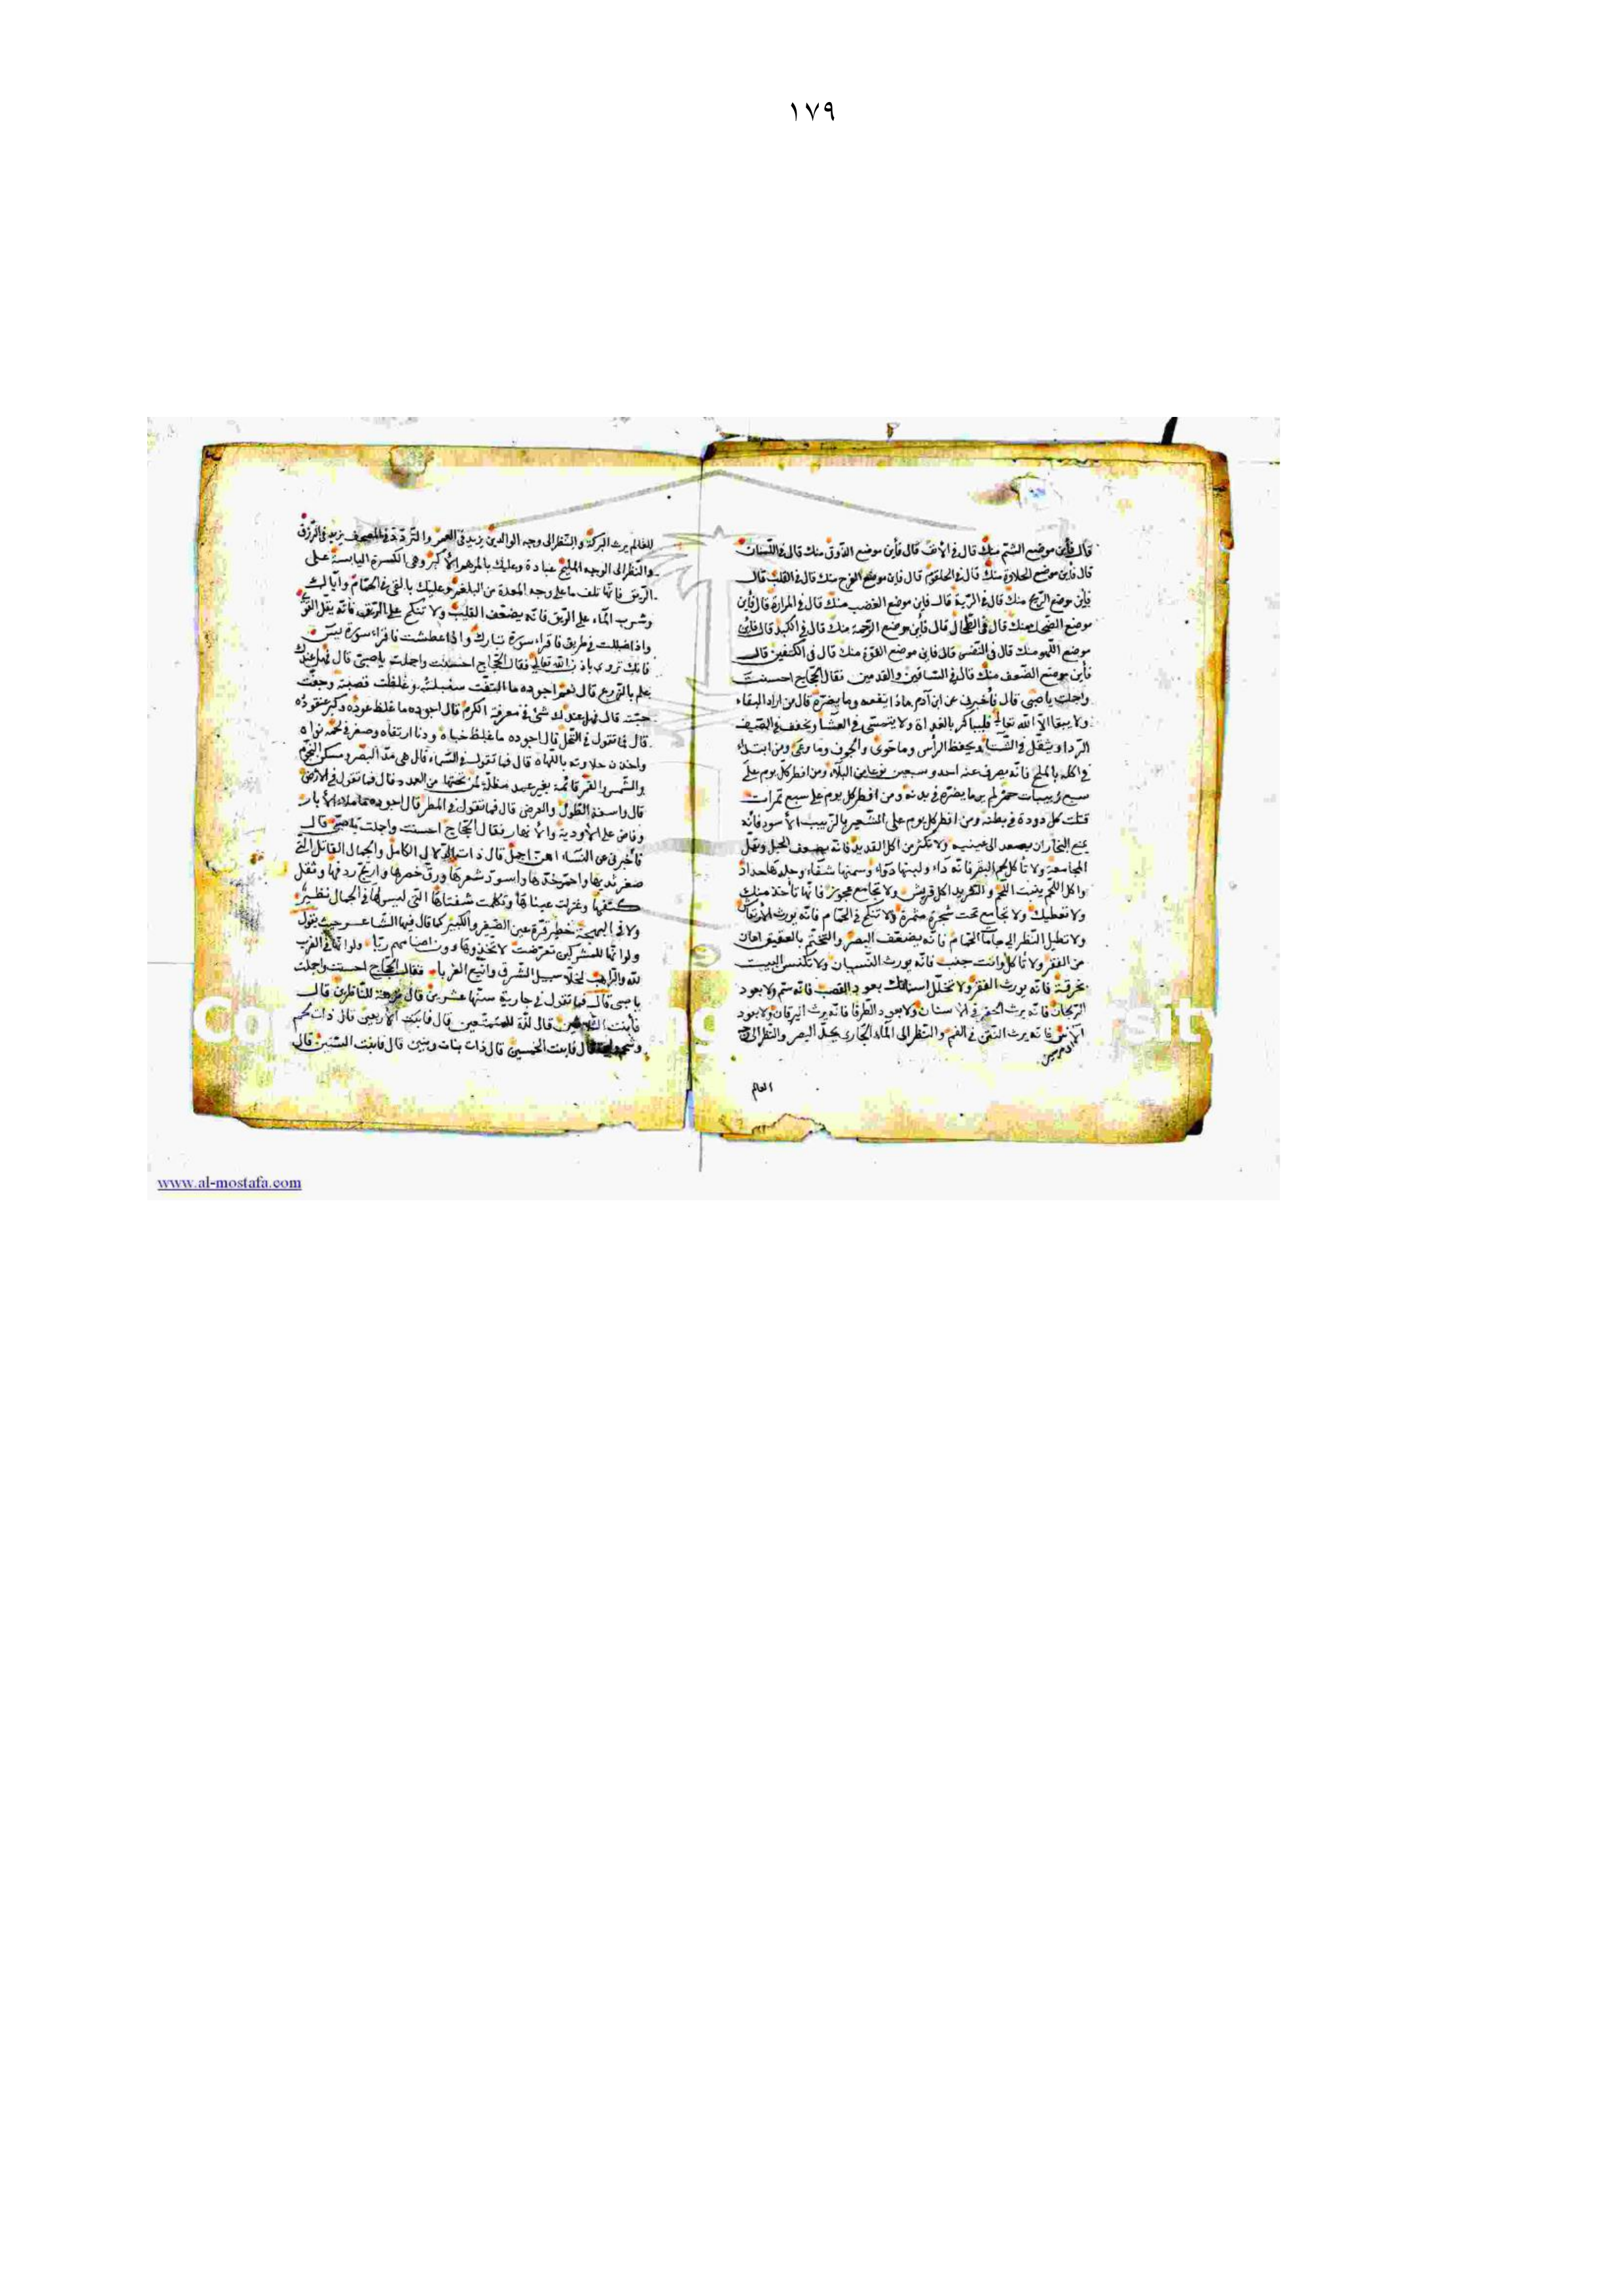 ١٧٩
قال فأين موضع الشم منك قال في الأنف قال فأين موضع الذوق منك قال في اللسان
قال فأين موضع الحلاوة منك قال في الحلقوم قال فاين موضع الفرح منك قال في القلب قال
فأين موضع الريح منك قال في الرية قال فاين موضع الغضب منك قال في المرارة قال فأين
موضع الضحك منك قال في الطحال قال فأين موضع الرحمة منك قال في الكبد قال فأين
موضع اللهو منك قال في النفس قال فاين موضع القوة منك قال في الكتفين قال
فأين موضع الضعف منك قال في الساقين والقدمين فقال الحجاج احسنت
واجملت ياصبي قال فأخبرني عن ابن آدم ماذا ينفعه وما يضره قال من اراد البقاء
ولا يبقا الا الله تعالى فليباكر بالغداة ولا يتمسى في العشا ويخفف في الصيف
الردا ويثقل في الشتا ويحفظ الرأس وما حوى والجوف وما وعى ومن ابتداء
في اكله بالملح فانه يصرف عنه احد وسبعين نوعا من البلاء ومن افطر كل يوم على
سبع زبيبات حمر لم ير ما يضره في بدنه ومن افطر كل يوم على سبع تمرات
قتلت كل دودة في بطنه ومن افطر كل يوم على الزبيب الاسود فانه
يمنع البخار ان يصعد الى عينيه ولا تكثر من اكل القديد فانه يضعف
المجامعة ولا تأكل لحم البقر فانه داء ولبنها دواء وسمنها شفاء وجلدها
واكل اللحم ينبت اللحم والثريد اكل قريش ولا تجامع عجوز فانها تأخذ منك
ولا تعطيك ولا تجامع تحت شجرة مثمرة ولا تنكح في الحمام فانه يورث
ولا تطيل النظر الى الحمام فانه يضعف البصر والتختم بالعقيق امان
من الفقر ولا تأكل وانت جنب فانه يورث النسيان ولا تكنس البيت
بخرقة فانه يورث الفقر ولا تخلل اسنانك بعود القصب فانه سم ولا بعود
الريحان فانه يرث الحفر في الاسنان ولا بعود الطرفا فانه يرث اليرقان ولا بعود
فانه يرث النتن في الفم والنظر الى الماء الجاري يجلي البصر والنظر الى وجه
العالم
للعالم يرث البركة والنظر الى وجه الوالدين يزيد في العمر في المصحف يزيد في الرزق
والنظر الى الوجه المليح عبادة وعليك بالمرهم الأكبر وهى الكسرة اليابسة على
الريق فانها تلف ما على وجه المعدة من البلغم وعليك بالقئ في الحمام واياك
وشرب الماء على الريق فانه يضعف القلب ولا تنكح على الريق فانه يقل القوى
واذا ضللت في طريق فاقراء سورة تبارك واذا عطشت فاقراء سورة يس
فانك تروى باذن الله تعالى فقال الحجاج احسنت واجملت ياصبي قال فهل عندك
علم بالزرع قال نعم اجوده ما التفت سنبلته وغلظت قصبته وجفت
حبته قال فهل عندك شئ في معرفة الكرم قال اجوده ما غلظ عوده وكبر عنقوده
قال فما تقول في النخل قال اجوده ما غلظ ودنا ارتفاه وصغر في لحمه نواه
واخذت حلاوته باللهاه قال فما تقول في السماء قال هى مد البصر ومسكن النجوم
والشمس والقمر قائمة بغير عمد مظلة لمن تحتها من العدد قال فما تقول في الأرض
قال واسعة الطول والعرض قال فما تقول في المطر قال اجوده ما ملاء الابار
وفاض على الأودية والانهار فقال الحجاج احسنت واجملت ياصبي قال
فأخبرني عن النساء اهن اجمل قال ذات الدلال الكامل والجمال القاتل التي
صغر نهديها واحمر خدها واسود شعرها ورق خصرها وارتج ردفها وثقل
كتفها وغزلت عيناها شفتاها التي ليس لها في الجمال نظير
ولا في البهجة خطير قرة عين الصغير والكبير كما قال فيها الشاعر حيث يقول
ولو انها للمشركين تعرضت لاتخذوها دون اصنامهم ربا ولو انها في الغرب
والراهب لخلا سبيل الشرق واتبع الغربا فقال الحجاج احسنت واجملت
ياصبي قال فما تقول في جارية سنها عشرين قال نزهة للناظرين قال
فابنت الثلاثين قال لذة للمتمتعين قال فابنت الاربعين قال ذات لحم
وشحم قال فابنت الخمسين قال ذات بنات وبنين قال فابنت الستين قال
www.al-mostafa.com